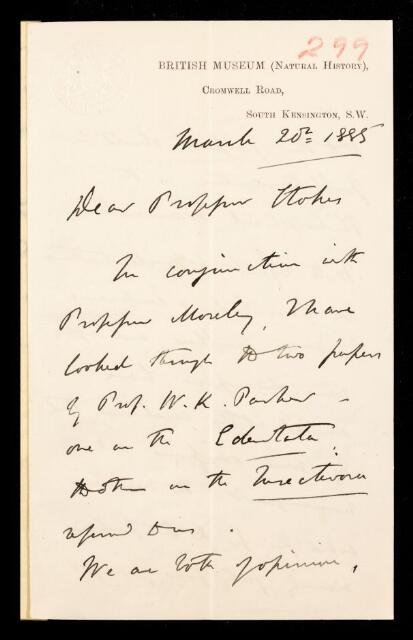 299
BRITISH MUSEUM (NATURAL HISTORY),
CROMWELL ROAD,
SOUTH KENSINGTON, S.W.
March 20th 1885
Dear Professor Stokes
In conjunction with
Professor Moseley, I have
looked through the two papers
by Prof. W. K. Parker –
one on the Edentata,
the other on the Insectivora
referred to us.
We are both of opinion,